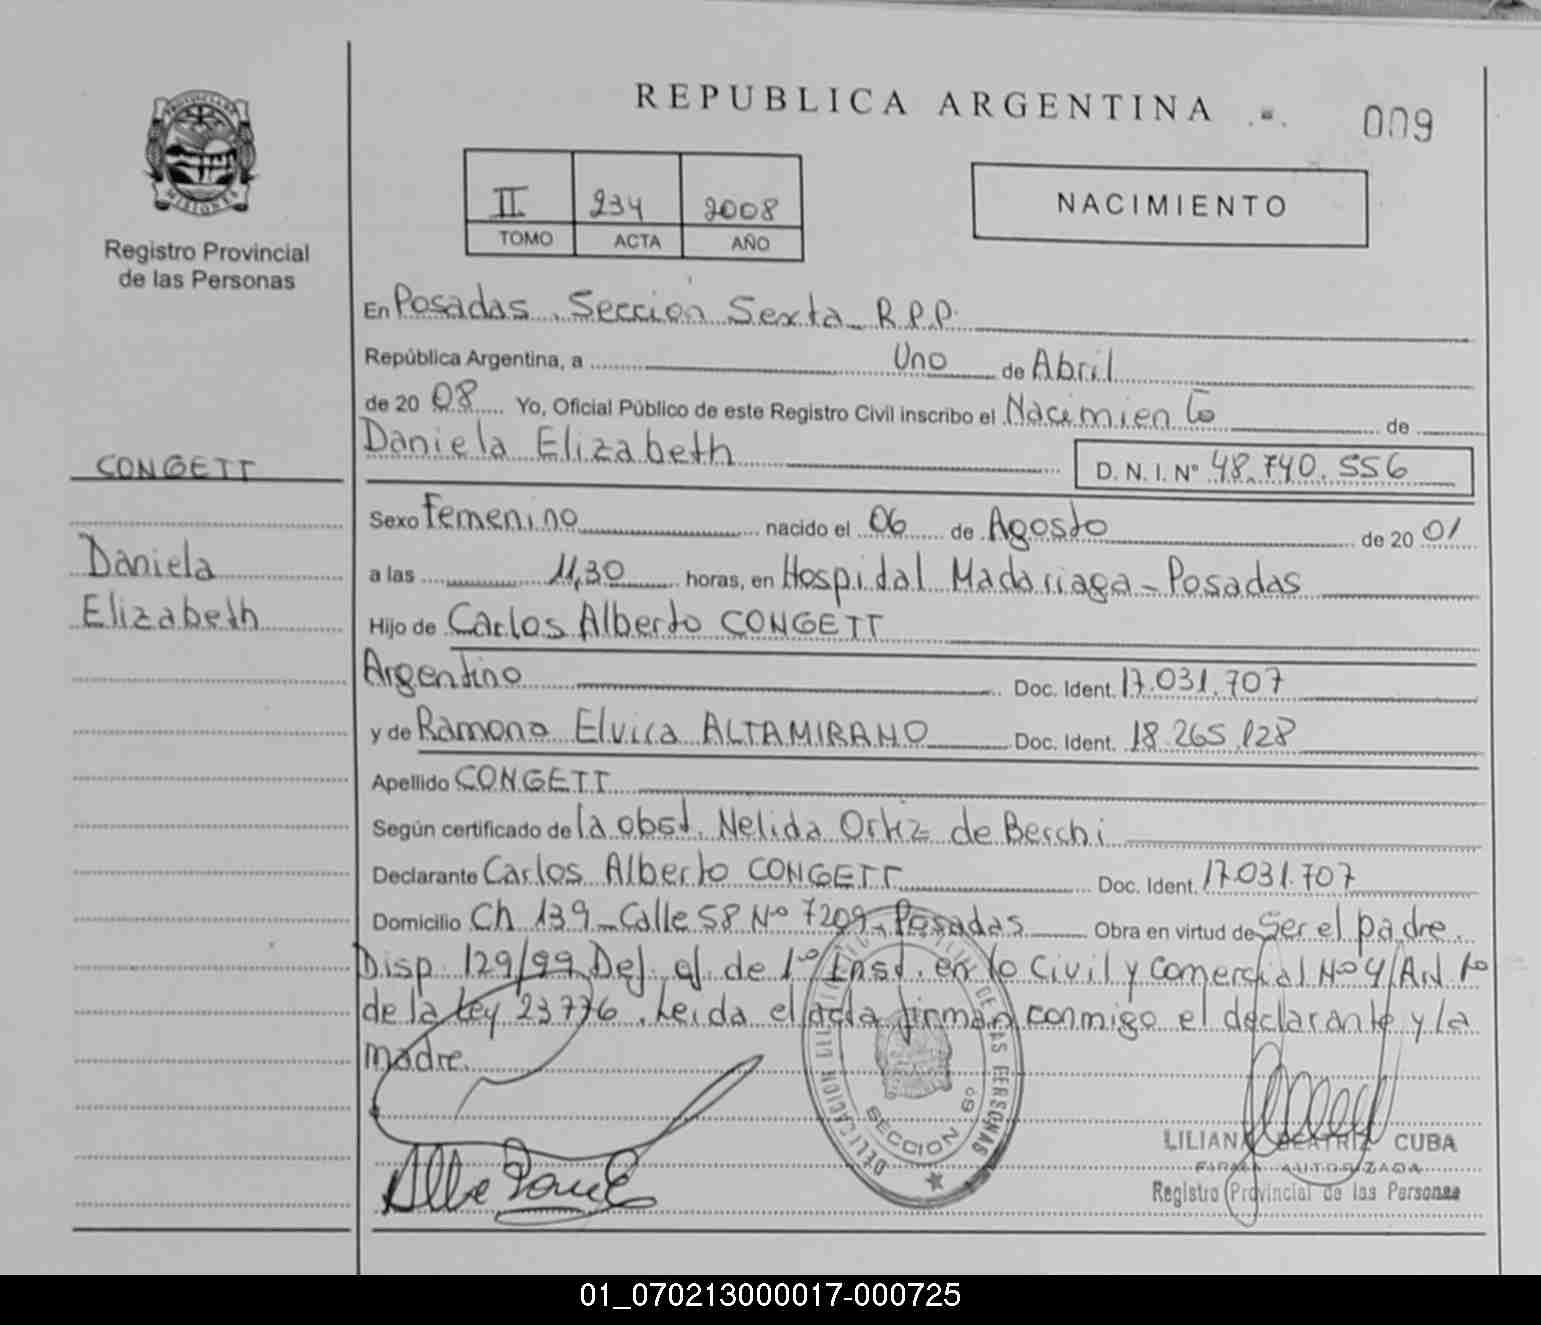 REPUBLICA ARGENTINA
009
PROVINCIA DE
MISIONES
Registro Provincial
de las Personas
II 234 2008
TOMO ACTA AÑO
NACIMIENTO
En Posadas. Sección Sexta R.P.P.
República Argentina, a Uno de Abril
de 20 08 Yo, Oficial Público de este Registro Civil inscribo el Nacimiento de
Daniela Elizabeth D. N. I. N° 48.740.556
CONGETT
Daniela
Elizabeth
Sexo Femenino nacido el 06 de Agosto de 20 01
a las 11,30 horas, en Hospidal Madariaga - Posadas
Hijo de Carlos Alberto CONGETT
Argentino Doc. Ident. 17.031.707
y de Ramona Elvira ALTAMIRANO Doc. Ident. 18.265.128
Apellido CONGETT
Según certificado de la obst. Nelida Ortiz de Becchi
Declarante Carlos Alberto CONGETT Doc. Ident. 17.031.707
Domicilio Ch 139 - Calle 58 N° 7209 - Posadas Obra en virtud de ser el padre.
Disp. 129/99 Def. of. de 1° Inst. en lo Civil y Comercial N° 4/Art. 1°
de la Ley 23776. Leida el acta firman conmigo el declarante y la
madre.
SECCION 6°
DE LAS PERSONAS
LILIANA BEATRIZ CUBA
FIRMA AUTORIZADA
Registro Provincial de las Personas
01_070213000017-000725